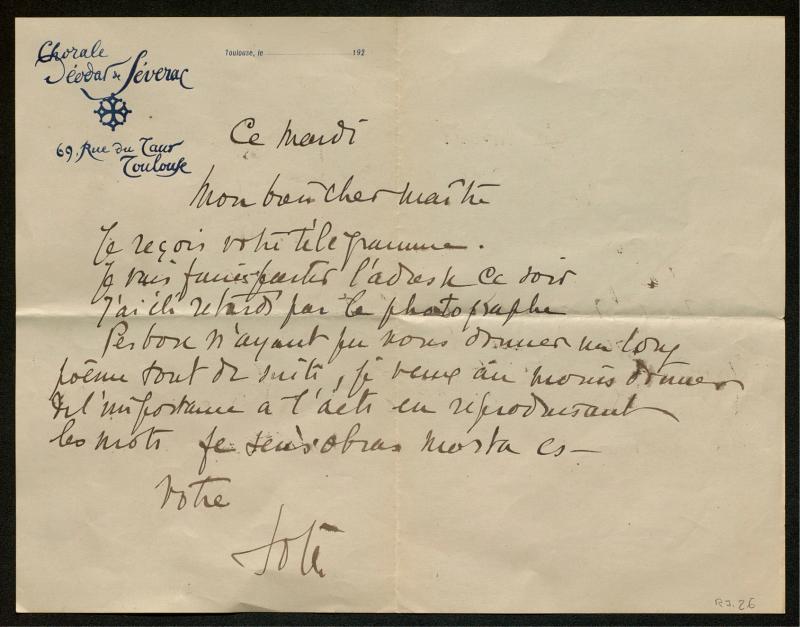 Chorale
Déodat de Séverac
69, Rue du Taur
Toulouse
Toulouse, le 192
Ce Mardi
Mon bon cher maître
Je reçois votre télégramme.
Je vais faire porter l'adresse ce soir
J'ai été retardé par le photographe
Perbosc n'ayant pu nous donner un long
poème tout de suite, je veux au moins donner
de l'importance a l'acte en reproduisant
les mots fe sens obras morta es—
Votre
R3.26